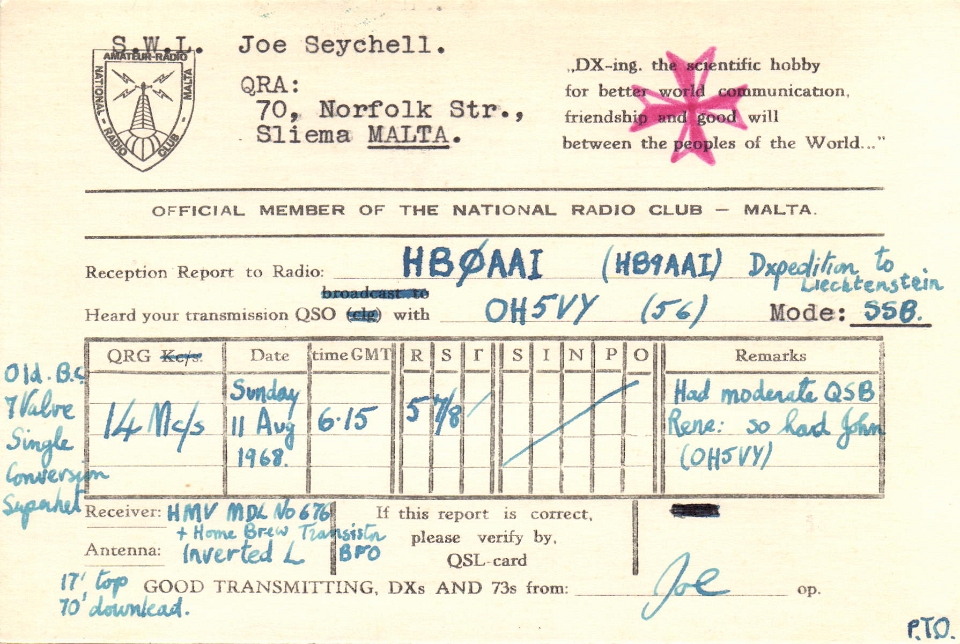 S.W.L. Joe Seychell.
AMATEUR-RADIO
NATIONAL - RADIO CLUB - MALTA
QRA:
70, Norfolk Str.,
Sliema MALTA.
„DX-ing. the scientific hobby
for better world communication,
friendship and good will
between the peoples of the World..."
OFFICIAL MEMBER OF THE NATIONAL RADIO CLUB — MALTA.
Reception Report to Radio: HBØAAI (HB9AAI) Dxpedition to
Liechtenstein
broadcast to
Heard your transmission QSO (clg) with OH5VY (56) Mode: SSB.
QRG Kc/s. Date time GMT R S T S I N P O Remarks
14 Mc/s
Sunday
11 Aug
1968.
6.15
5 7/8
Had moderate QSB
Rene: so had John
(OH5VY)
Old. B.C.
7 Valve
Single
Conversion
Superhet
Receiver: HMV MDL No 676
+ Home Brew Transistn
BFO
Antenna: Inverted L
17' top
70' downlead.
If this report is correct,
please verify by,
QSL-card
GOOD TRANSMITTING, DXs AND 73s from: Joe op.
P.T.O.